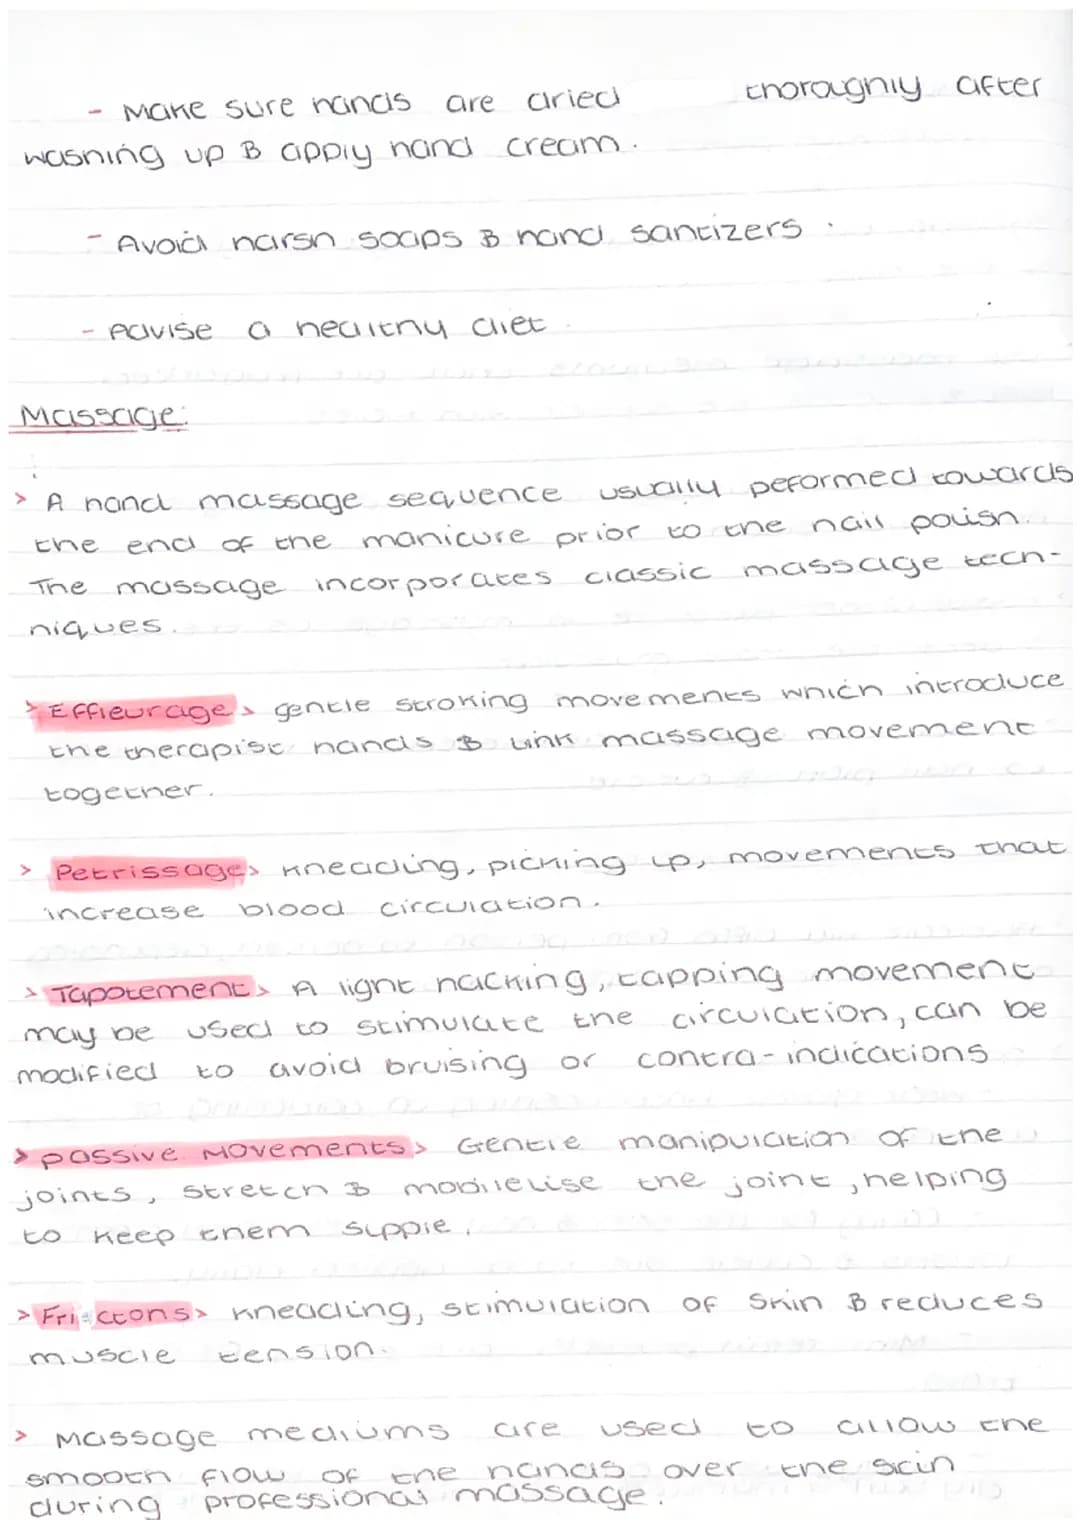 - Make sure hands are dried thoroughly after
washing up & apply hand cream.
- Avoid harsh soaps & hand santizers.
- Advise a healthy diet.
Massage:
> A hand massage sequence usually peformed towards
the end of the manicure prior to the nail polish.
The massage incorporates classic massage tech-
niques.
> Effleurage > gentle stroking movements which introduce
the therapist hands & link massage movement
together.
> Petrissage > kneading, picking up, movements that
increase blood circulation.
> Tapotement > A light hacking, tapping movement
may be used to stimulate the circulation, can be
modified to avoid bruising or contra-indications
> passive Movements > Gentle manipulation of the
joints, stretch & mobilelise the joint, helping
to keep them supple.
> Frictons > kneading, stimulation of skin & reduces
muscle tension.
> Massage mediums are used to allow the
smooth flow of the hands over the skin
during professional massage.